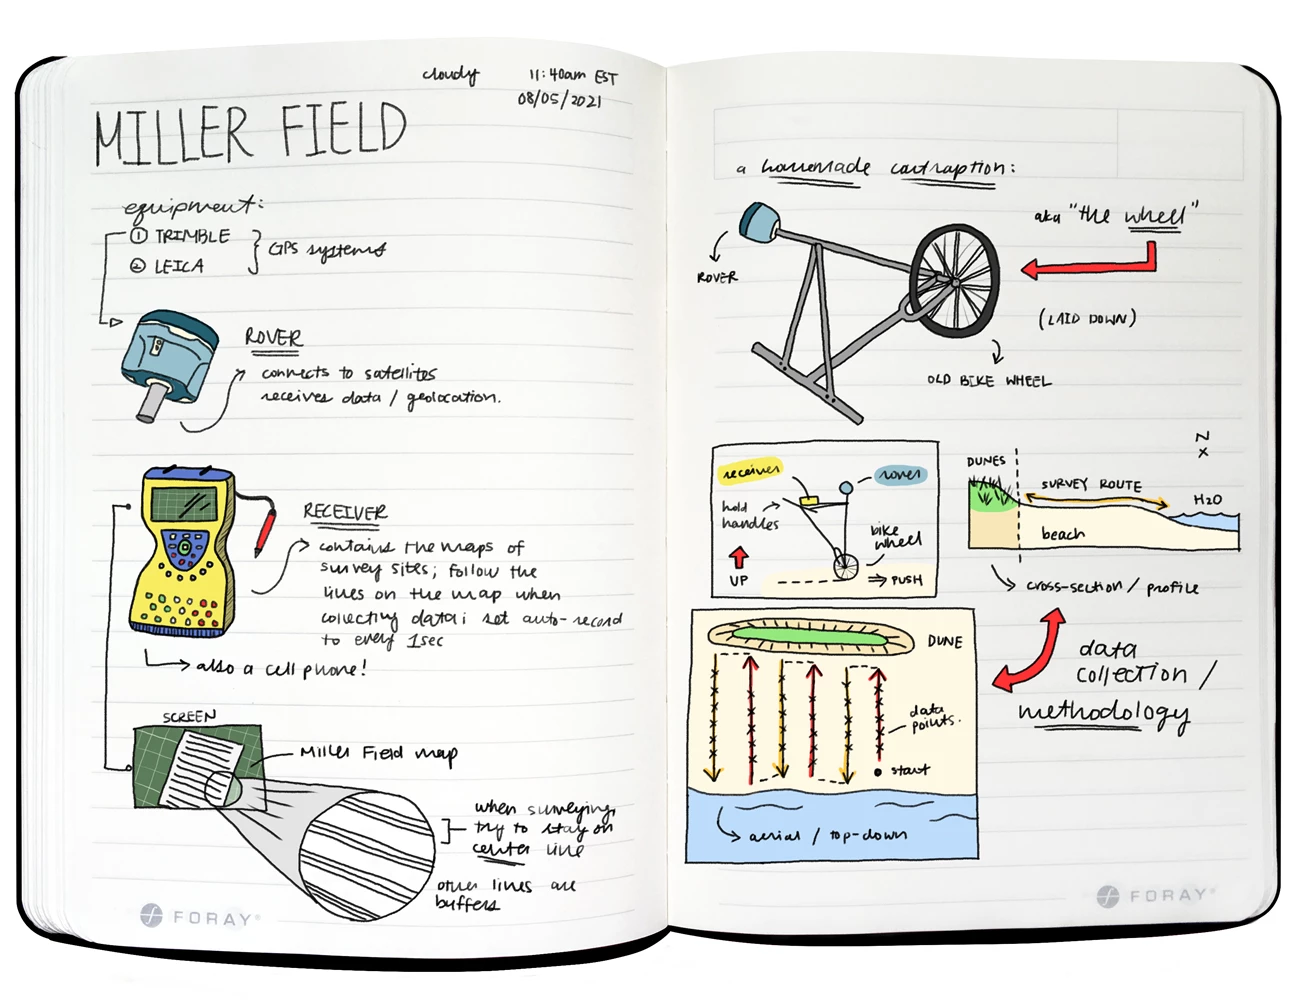 cloudy 11:40am EST
08/05/2021
MILLER FIELD
equipment:
① TRIMBLE
② LEICA
GPS systems
ROVER
connects to satellites
receives data / geolocation.
RECEIVER
contains the maps of
survey sites; follow the
lines on the map when
collecting data; set auto-record
to every 1sec
also a cell phone!
SCREEN
Miller Field map
when surveying,
try to stay on
center line
other lines are
buffers
FORAY®
a homemade contraption:
aka "the wheel"
ROVER
(LAID DOWN)
OLD BIKE WHEEL
receiver
rover
hold
handles
bike
wheel
UP
PUSH
N
DUNES
SURVEY ROUTE
H2O
beach
cross-section / profile
DUNE
data
points.
start
aerial / top-down
data
collection /
methodology
FORAY®